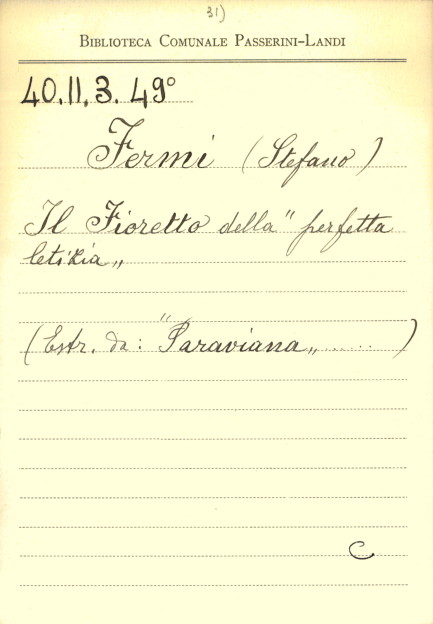 31)
BIBLIOTECA COMUNALE PASSERINI-LANDI
40.II.3.49°
Fermi (Stefano)
Il Fioretto della "perfetta
letizia„
(Estr. da: "Paraviana„ ..... )
C